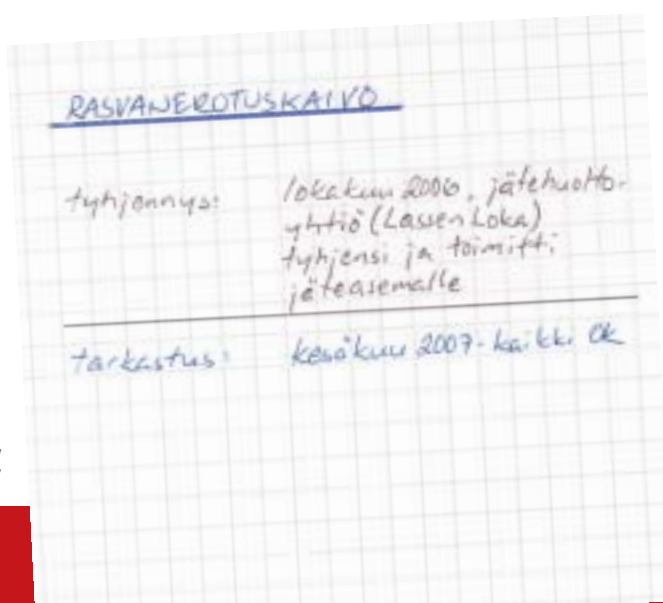 RASVANEROTUSKAIVO
tyhjennys: lokakuu 2006, jätehuolto-
yhtiö (Lassen Loka)
tyhjensi ja toimitti
jäteasemalle
tarkastus: kesäkuu 2007 - kaikki ok